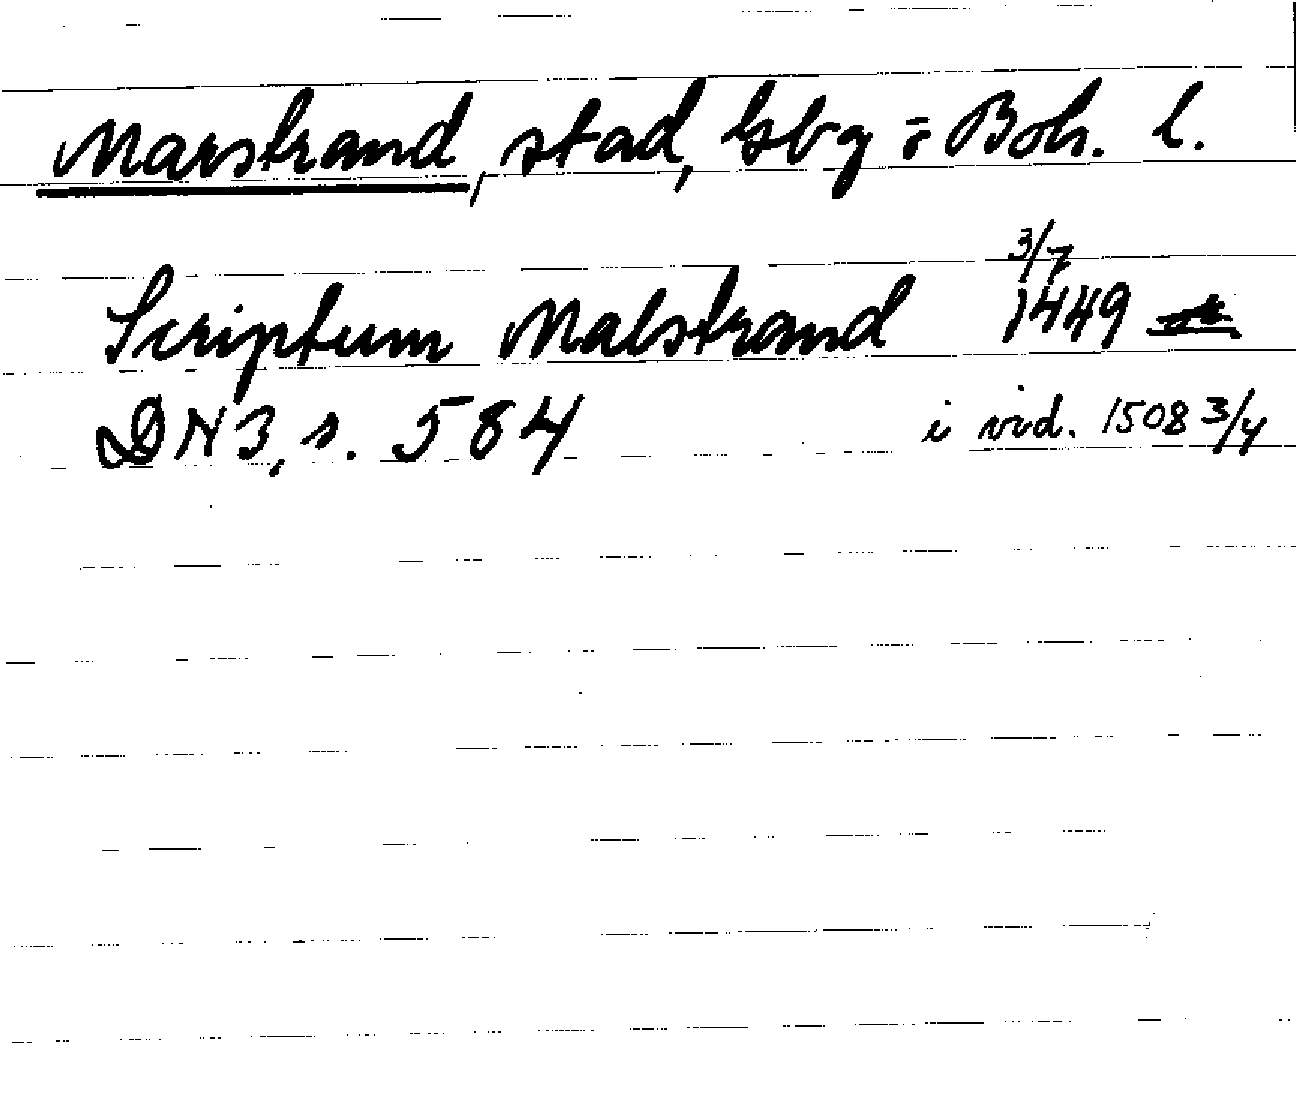 Marstrand, stad, Gbg o Boh. l.
3/7
Scriptum Malstrand 1449
DN3, s. 584 i vid. 1508 3/4